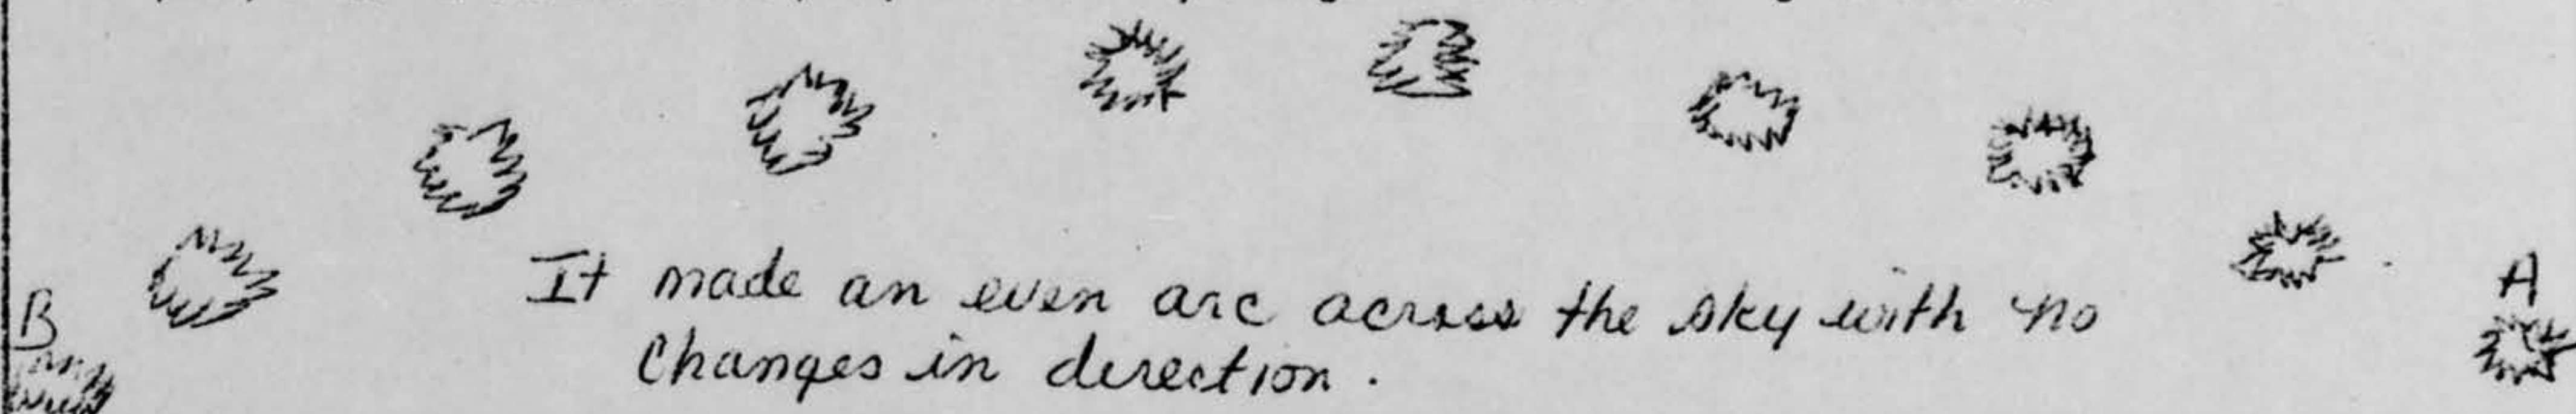 B
A
It made an even arc across the sky with no
Changes in derection.